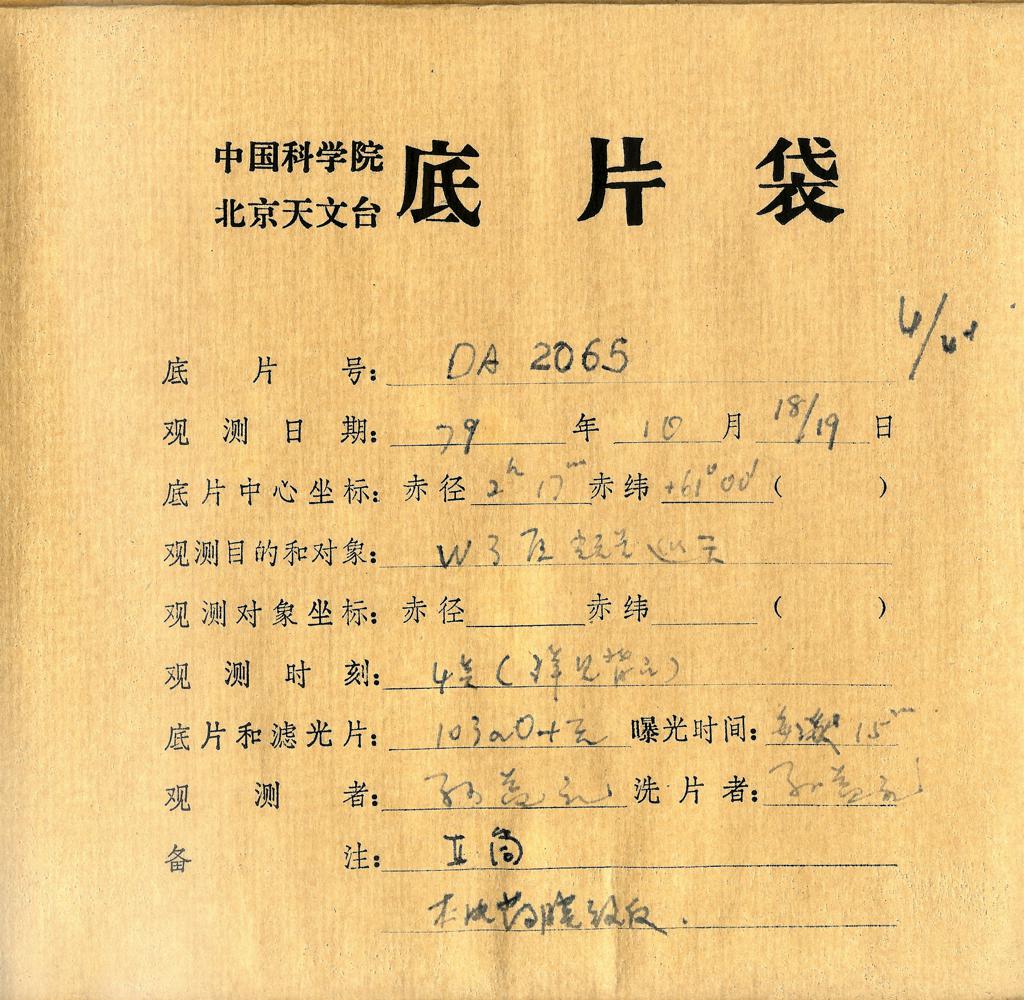 中国科学院
北京天文台
底片袋
4/
底片号: DA 2065
观测日期: 79 年 10 月 18/19 日
底片中心坐标: 赤径 2h 17m 赤纬 +61°00′ ( )
观测目的和对象: W3
观测对象坐标: 赤径 赤纬 ( )
观测时刻: 4 (详见
底片和滤光片: 103aO+无 曝光时间: 15m
观测者: 孙益礼 洗片者: 孙益礼
备注: II